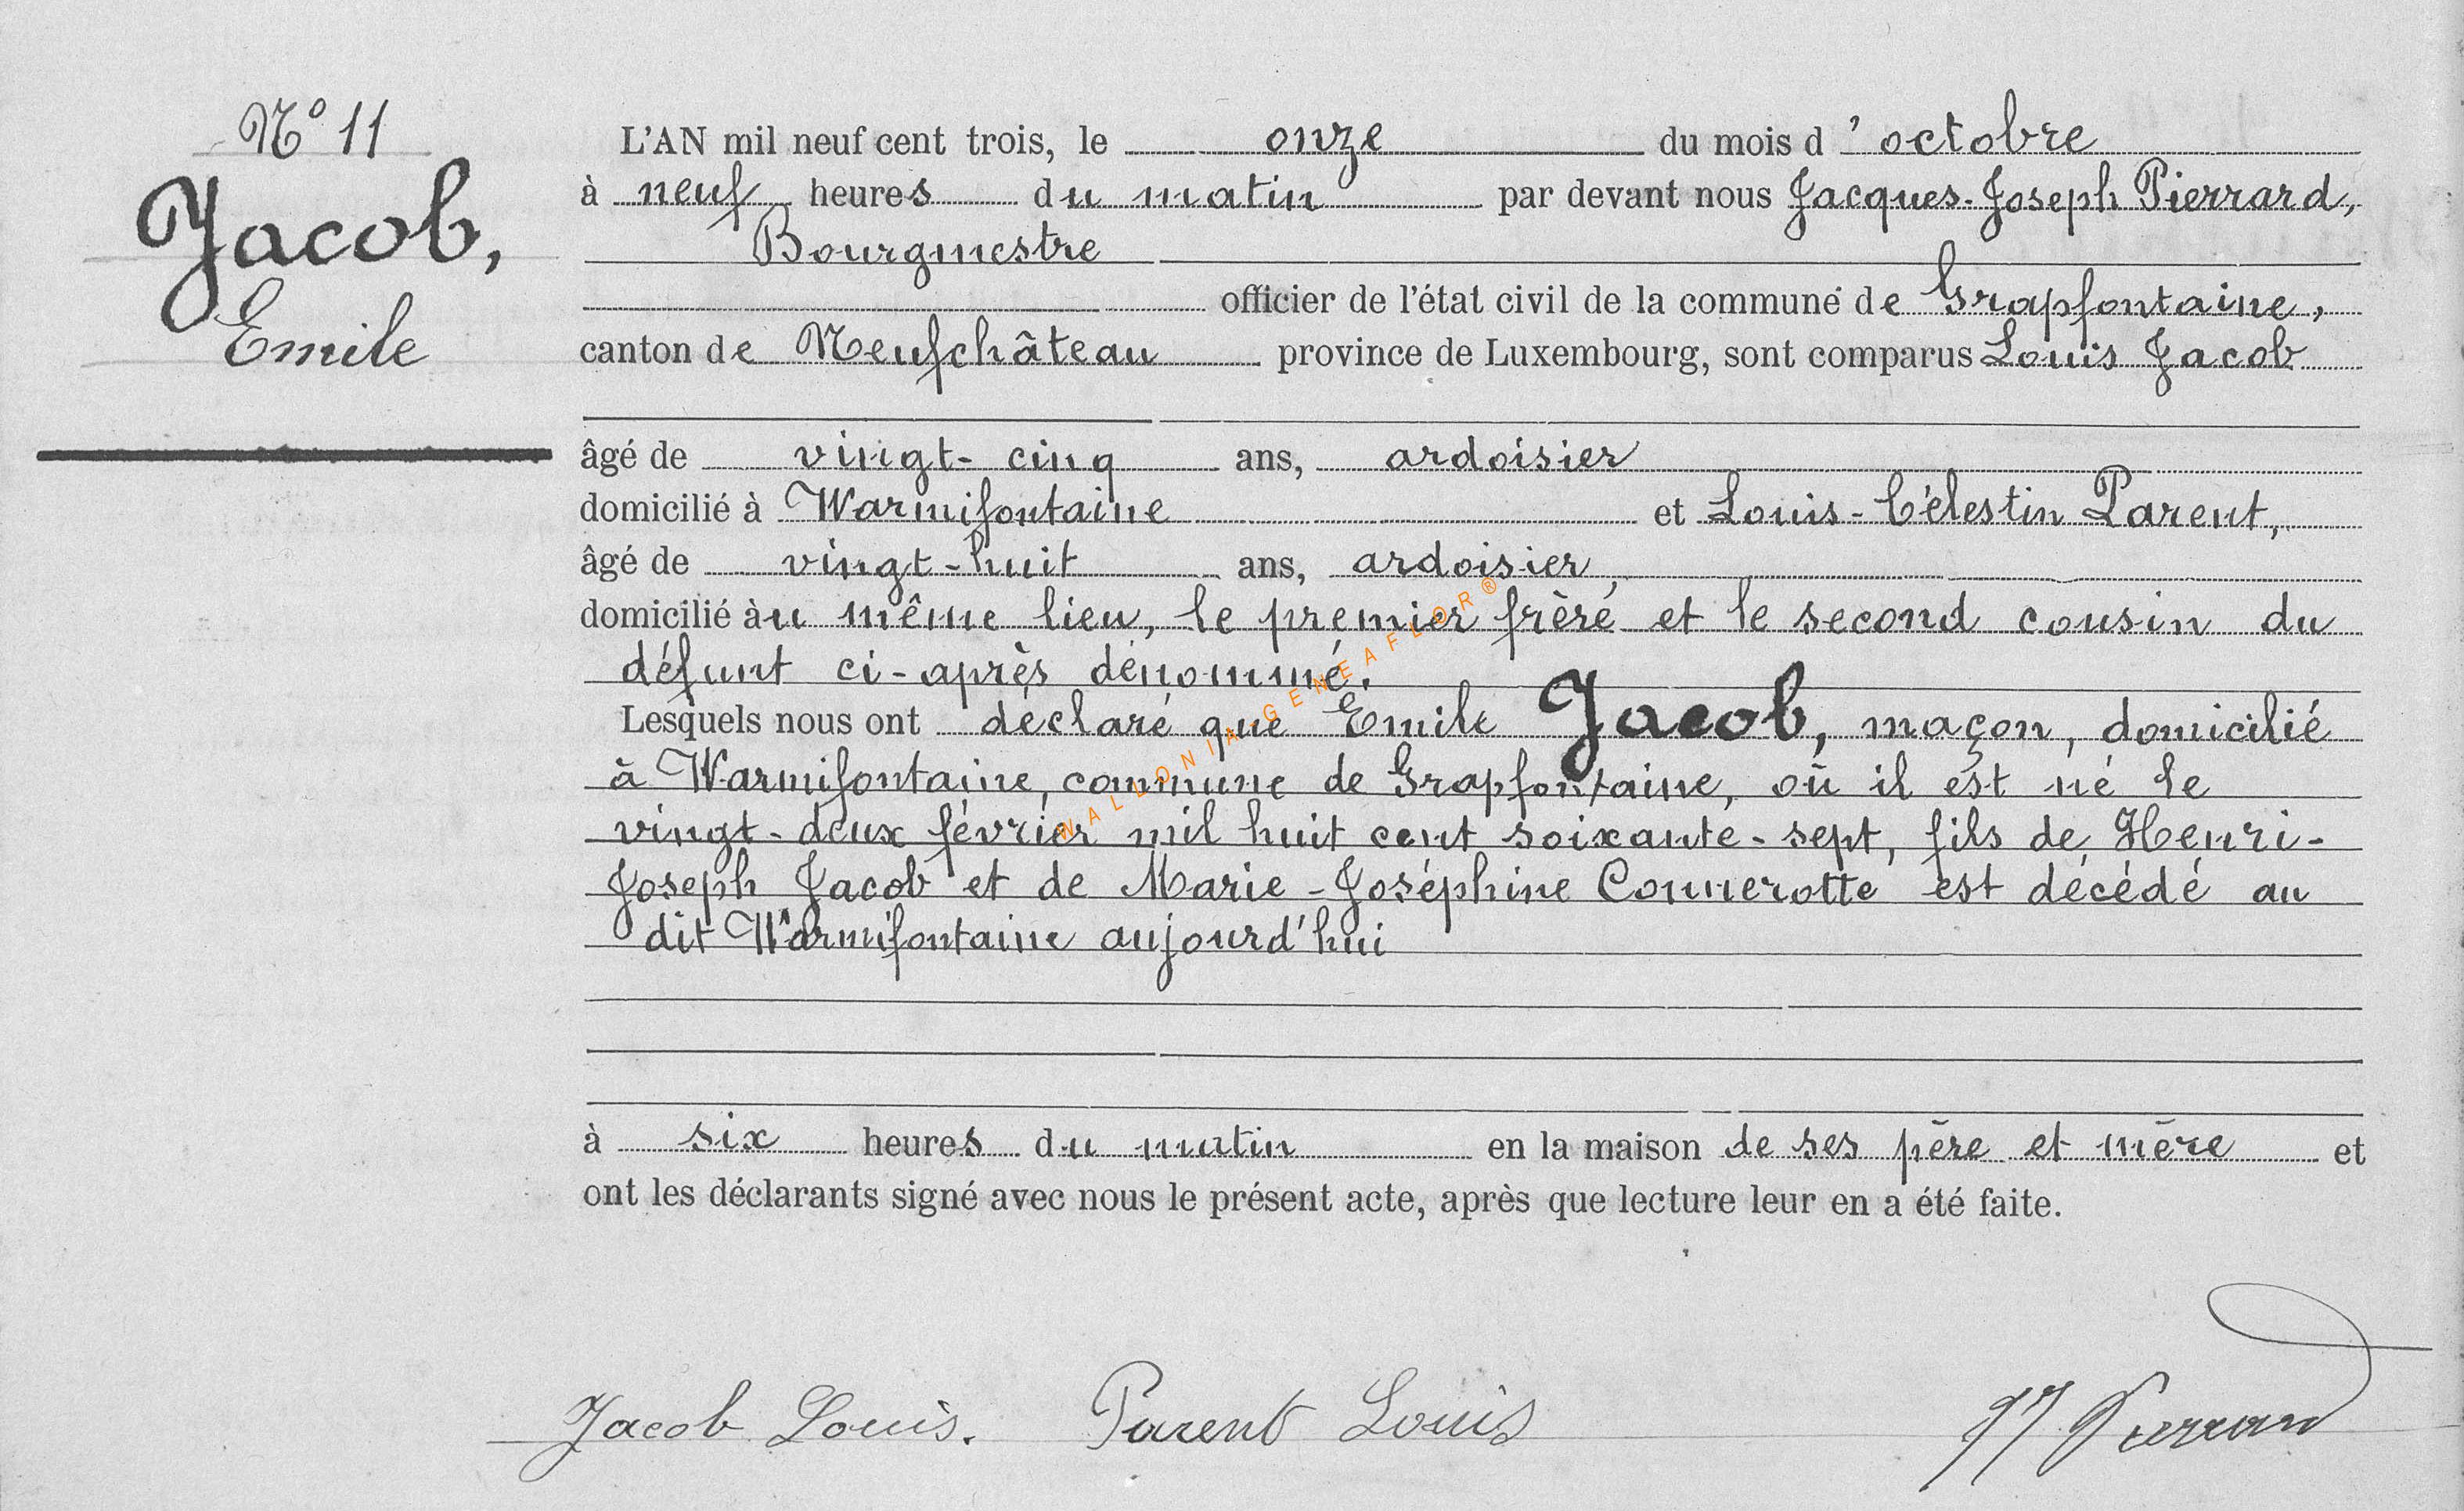 N° 11
Jacob,
Emile
L'AN mil neuf cent trois, le onze du mois d'octobre
à neuf heures du matin par devant nous Jacques-Joseph Pierrard,
Bourgmestre
officier de l'état civil de la commune de Grapfontaine,
canton de Neufchâteau province de Luxembourg, sont comparus Louis Jacob
âgé de vingt-cinq ans, ardoisier
domicilié à Warmifontaine et Louis-Célestin Parent,
âgé de vingt-huit ans, ardoisier,
domicilié àu même lieu, le premier frère et le second cousin du
défunt ci-après dénommé.
Lesquels nous ont déclaré que Emile Jacob, maçon, domicilié
à Warmifontaine, commune de Grapfontaine, où il est né le
vingt-deux février mil huit cent soixante-sept, fils de Henri-
Joseph Jacob et de Marie-Joséphine Connerotte est décédé au
dit Warmifontaine aujourd'hui
à six heures du matin en la maison de ses père et mère et
ont les déclarants signé avec nous le présent acte, après que lecture leur en a été faite.
Jacob Louis. Parent Louis JJ Pierrard
WALLONIA-GENEAFLOR®